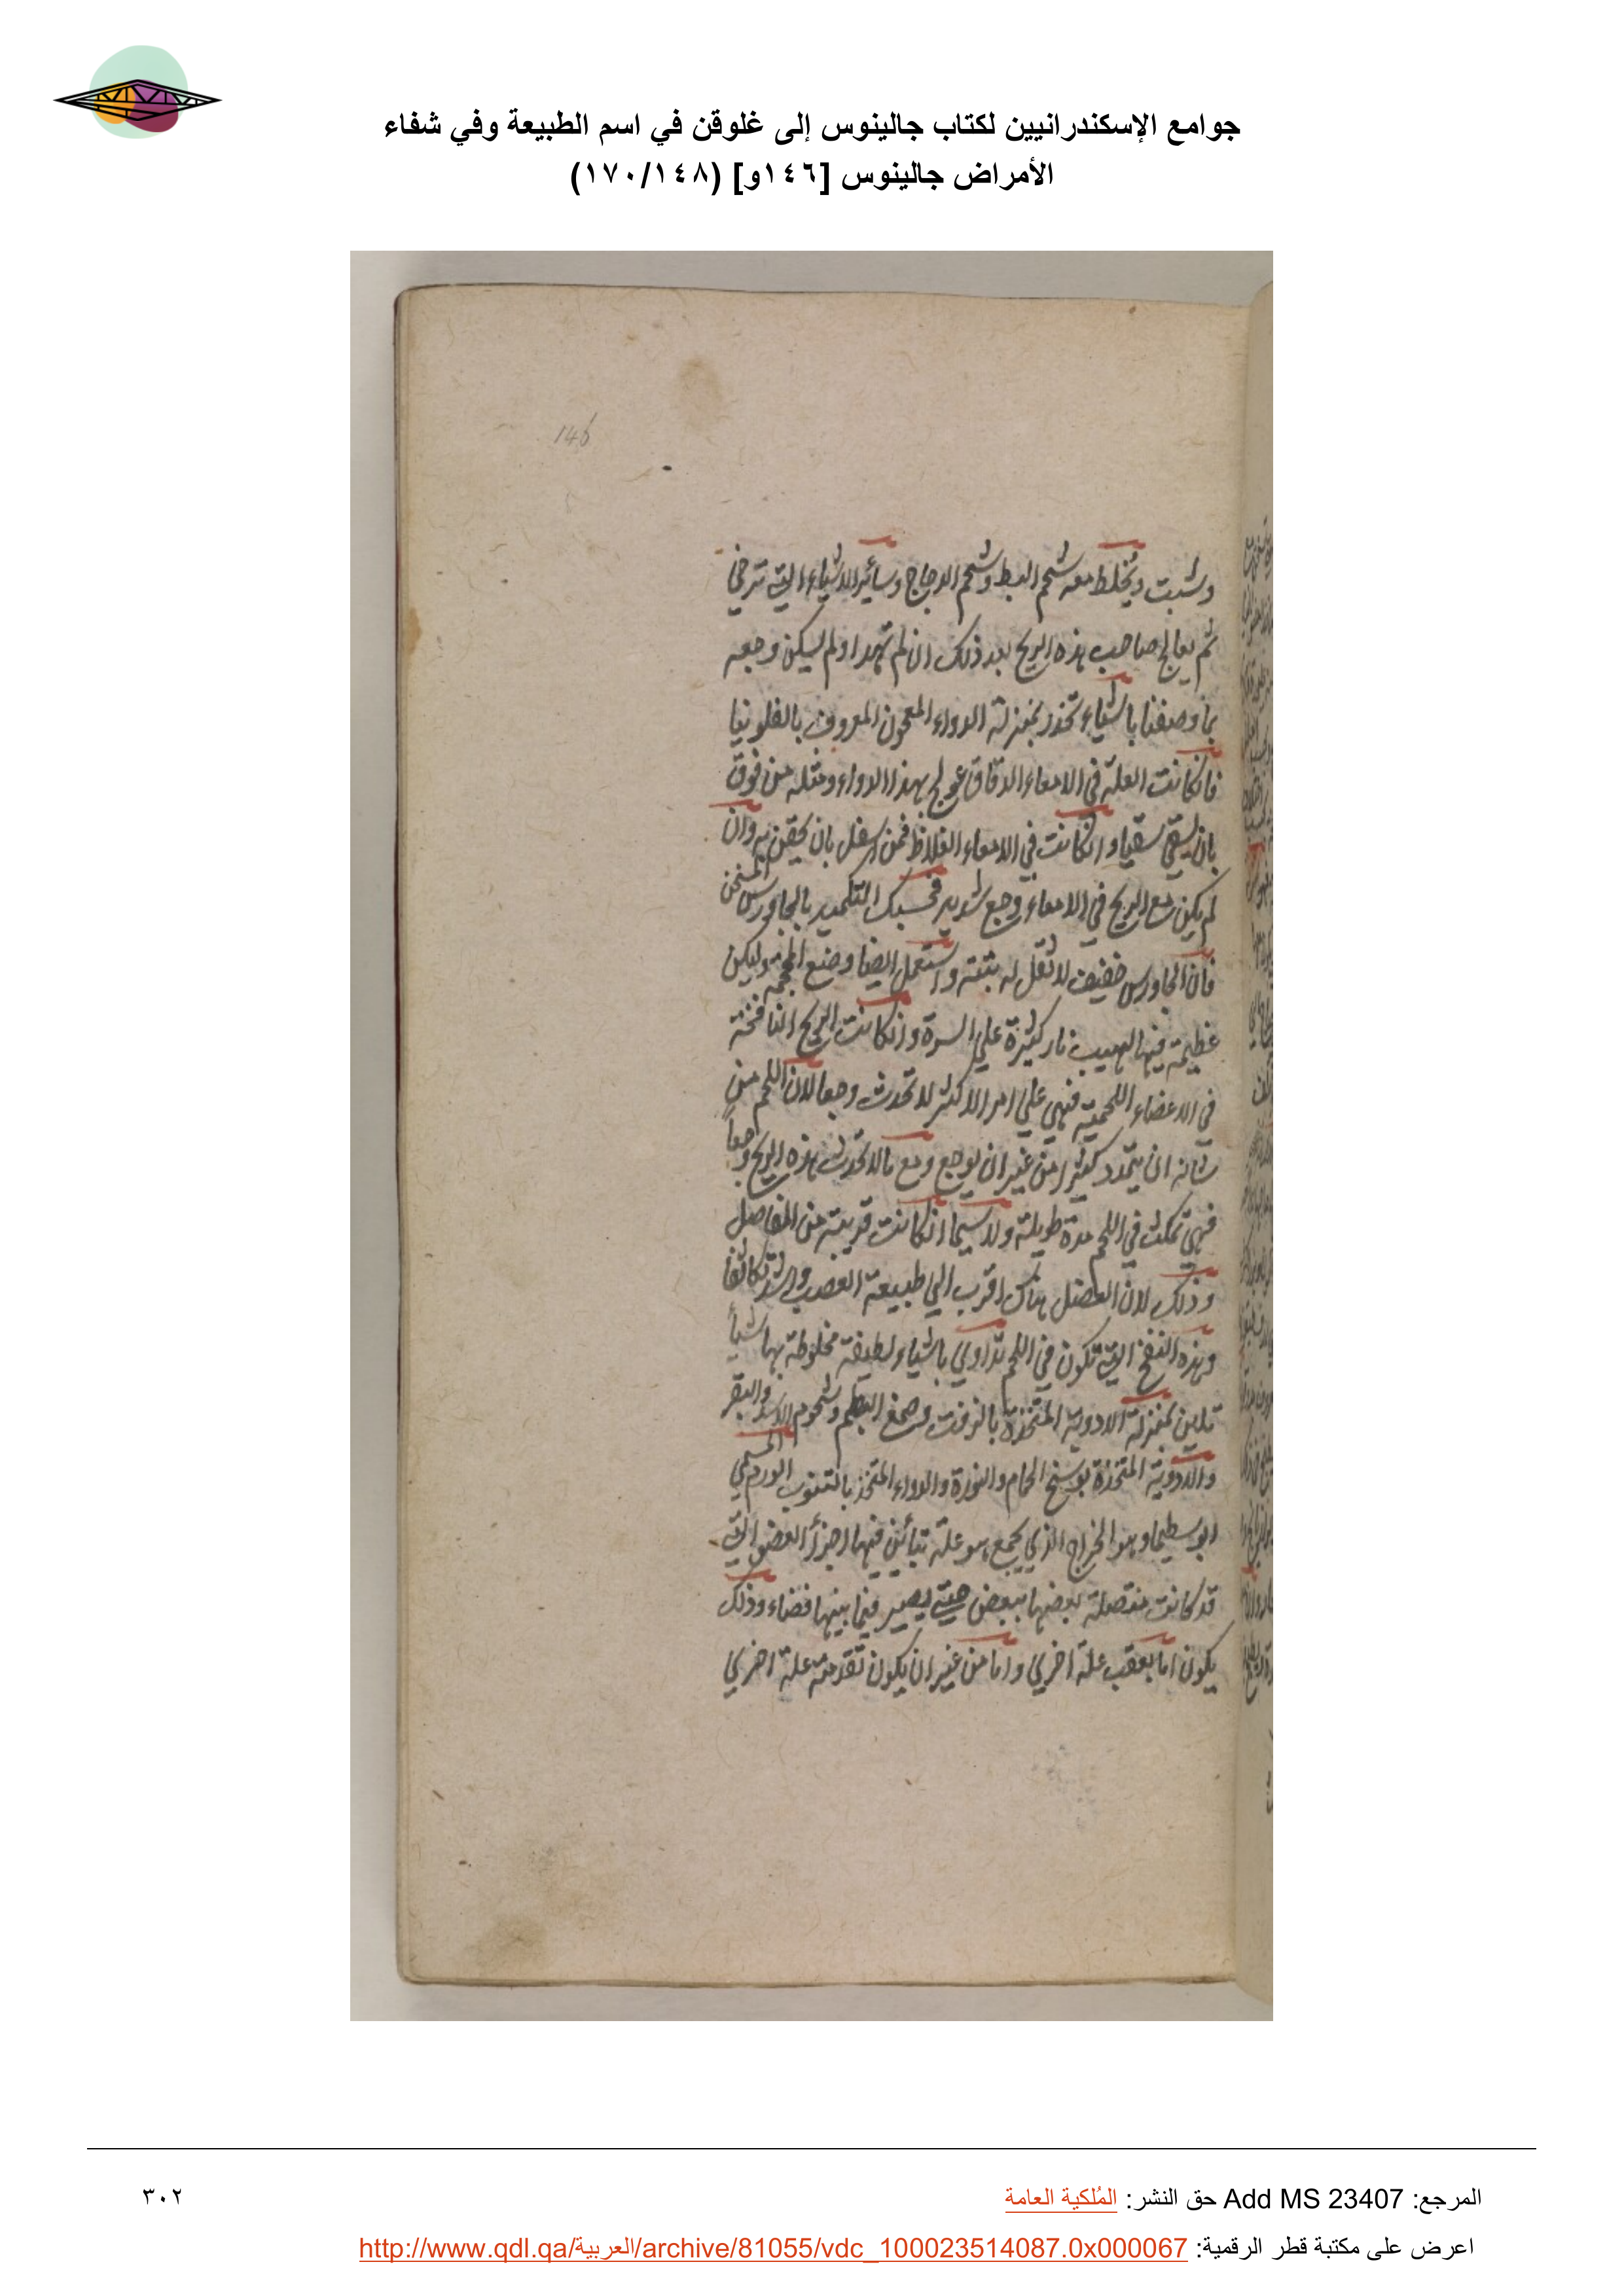 جوامع الإسكندرانيين لكتاب جالينوس إلى غلوقن في اسم الطبيعة وفي شفاء
الأمراض جالينوس [١٤٦و] (١٧٠/١٤٨)
146
وشبت ويخلط معه شحم البط وشحم الدجاج وسائر الاشياء التي ترخي
ثم يعالج صاحب هذه الريح بعد ذلك ان لم تهدا ولم يسكن وجعه
بما وصفنا باشياء تخدر بمنزلة الدواء المعجون المعروف بالفلونيا
فان كانت العلة في الامعاء الدقاق عولج بهذا الدواء ومثله من فوق
بان يسقي سقيا وان كانت في الامعاء الغلاظ فمن اسفل بان يحقن به وان
لم يكن مع الريح في الامعاء وجع شديد فحسبك التكميد بالجاورس المسخن
فان الجاورس خفيف لا ثقل له بتة واستعمل ايضا وضع المحجمة وليكن
عظيمة فيها لهيب نار كثيرة علي السرة وان كانت الريح النافخة
في الاعضاء اللحمية فهي علي امر الاكثر لا تحدث وجعا لان اللحم من
شانه ان يتمدد كثيرا من غير ان يوجع ومع ما لا تحدث هذه الريح وجعاً
فهي تمكث في اللحم مدة طويلة ولا سيما ان كانت قريبة من المفاصل
وذلك لان العضل هناك اقرب الي طبيعة العصب واشد تكاثفا
وهذه النفخ التي تكون في اللحم تداوي باشياء لطيفة مخلوطة بها شيأ
تلين بمنزلة الادوية المتخذة بالزفت وصمغ البطم وشحوم الاسد والبقر
والادوية المتخذة بوسخ الحمام والنورة والدواء المتخذ بالتنوب الورم المسمي
ابوسطيما وهو الخراج الذي يجمع هو علة تباين فيها اجزأ العضو التي
قد كانت متصلة بعضها ببعض حتي يصير فيما بينها فضاء وذلك
يكون اما بعقب علة اخري واما من غير ان يكون تقدمته علة اخري
المرجع: Add MS 23407 حق النشر: المُلكية العامة
٣٠٢
اعرض على مكتبة قطر الرقمية: http://www.qdl.qa/العربية/archive/81055/vdc_100023514087.0x000067